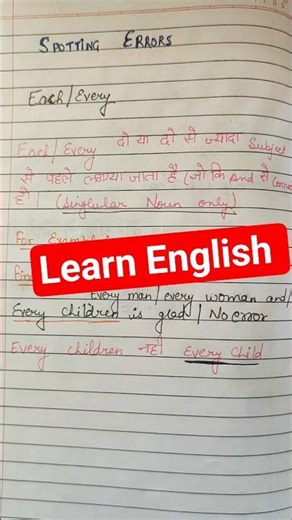 SPOTTING ERRORS
Each/Every
Each/Every दो या दो से ज्यादा Subject
से पहले लगाया जाता है (जो कि And से
हो। (Singlular Noun only)
For
Learn English
Every man/every woman and/
Every children is glad/No error
Every children नही Every Child